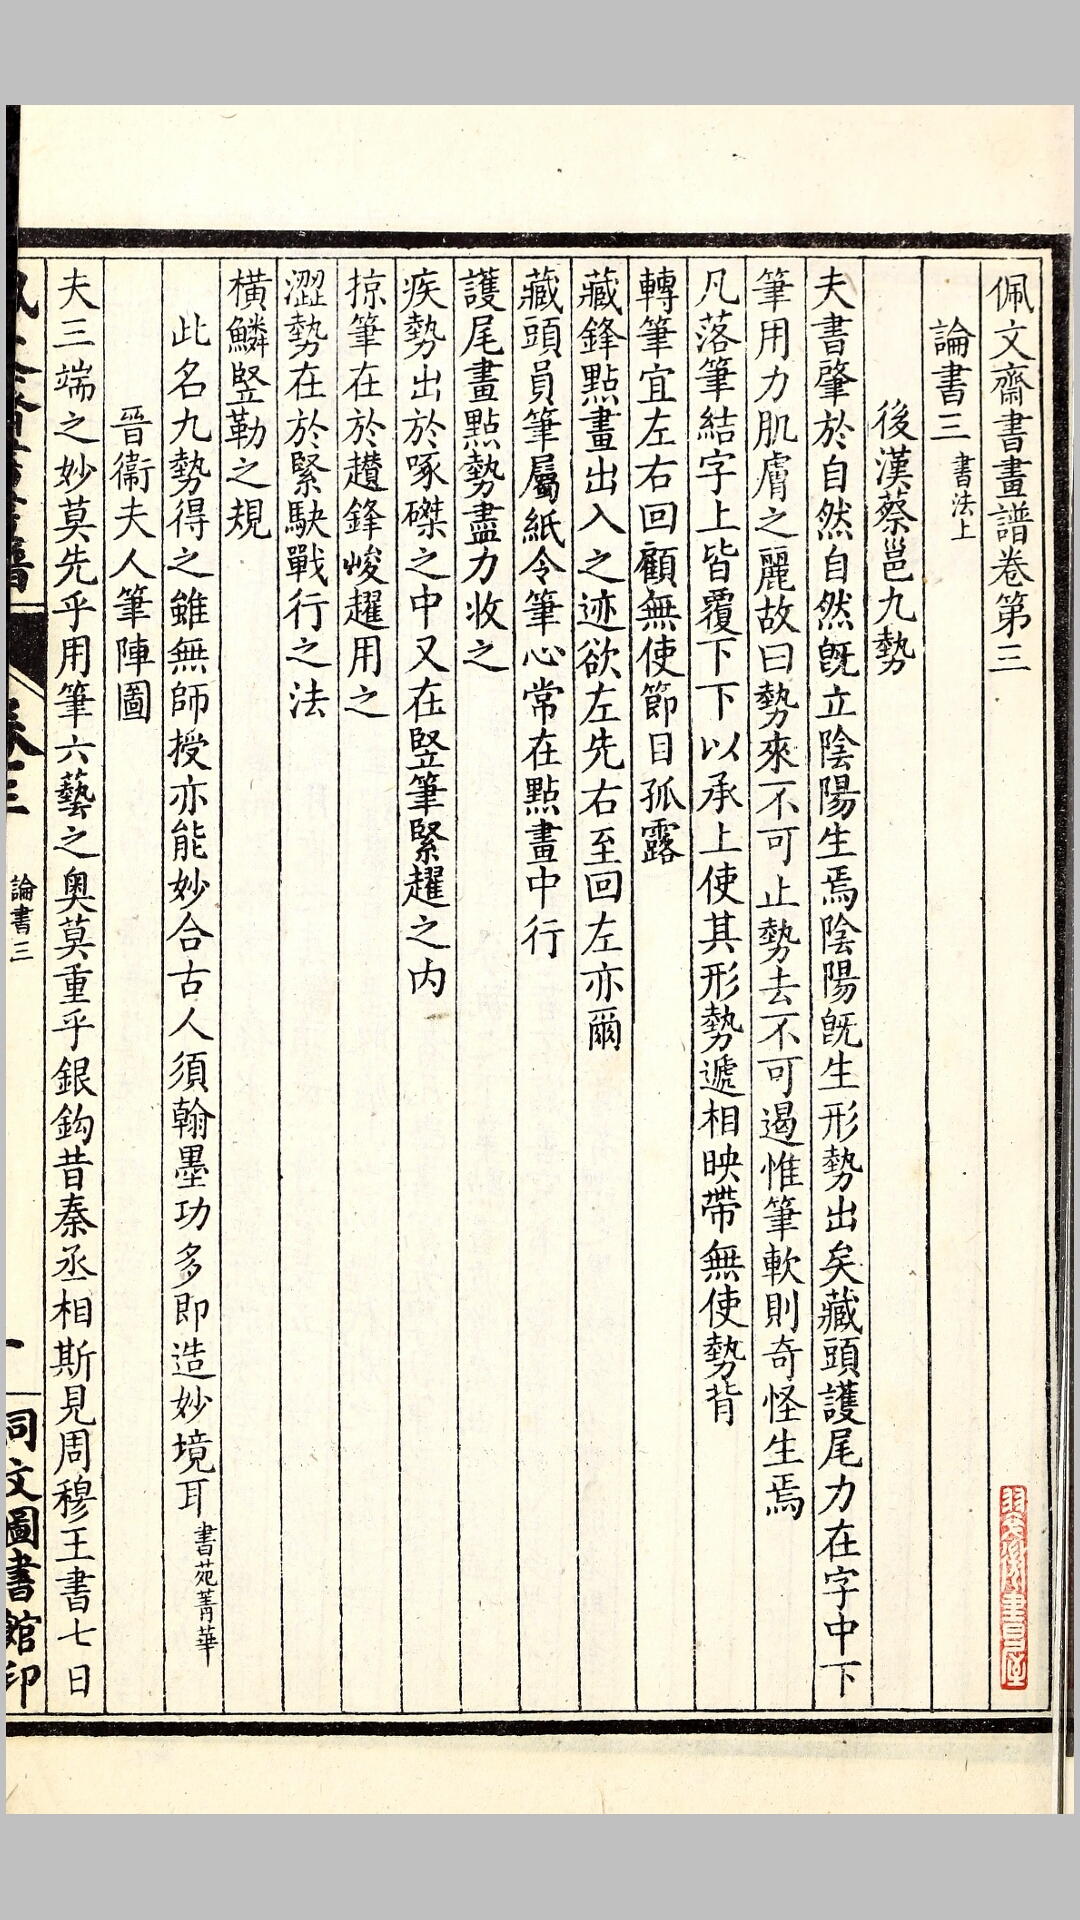 佩文齋書畫譜卷第三
論書三 書法上
後漢蔡邕九勢
夫書肇於自然自然旣立陰陽生焉陰陽旣生形勢出矣藏頭護尾力在字中下
筆用力肌膚之麗故曰勢來不可止勢去不可遏惟筆軟則奇怪生焉
凡落筆結字上皆覆下下以承上使其形勢遞相映帶無使勢背
轉筆宜左右回顧無使節目孤露
藏鋒點畫出入之迹欲左先右至回左亦爾
藏頭員筆屬紙令筆心常在點畫中行
護尾畫點勢盡力收之
疾勢出於啄磔之中又在竪筆緊趯之内
掠筆在於趲鋒峻趯用之
澀勢在於緊駃戰行之法
橫鱗竪勒之規
此名九勢得之雖無師授亦能妙合古人須翰墨功多即造妙境耳 書苑菁華
晉衞夫人筆陣圖
夫三端之妙莫先乎用筆六藝之奧莫重乎銀鈎昔秦丞相斯見周穆王書七日
卷三
論書三
一
同文圖書館印